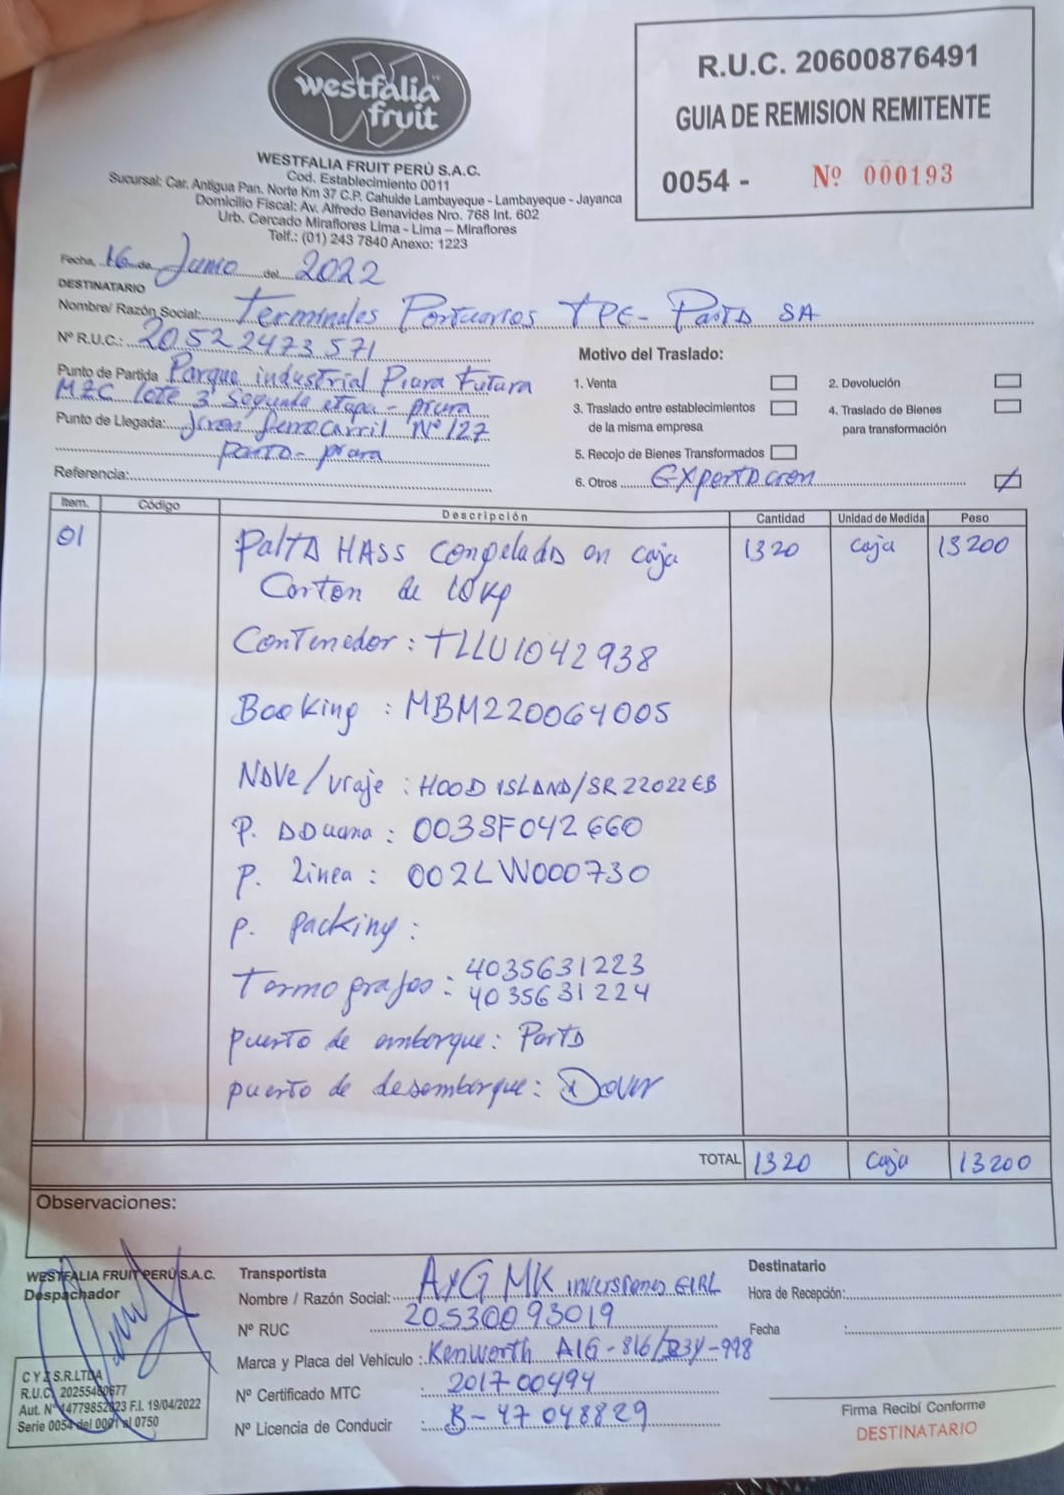 westfalia
fruit
WESTFALIA FRUIT PERÚ S.A.C.
Cod. Establecimiento 0011
Sucursal: Car. Antigua Pan. Norte Km 37 C.P. Cahuide Lambayeque - Lambayeque - Jayanca
Domicilio Fiscal: Av. Alfredo Benavides Nro. 768 Int. 602
Urb. Cercado Miraflores Lima - Lima – Miraflores
Telf.: (01) 243 7840 Anexo: 1223
R.U.C. 20600876491
GUIA DE REMISION REMITENTE
0054 - Nº 000193
Fecha, 16 de Junio del 2022
DESTINATARIO
Nombre/ Razón Social: Terminales Portuarios TPE- Paita SA
Nº R.U.C.: 20522473571
Punto de Partida Parque industrial Piura Futura
MZC lote 3 Segunda etapa - piura
Punto de Llegada: Jiron ferrocarril Nº 127
paita - piura
Referencia:
Motivo del Traslado:
1. Venta
2. Devolución
3. Traslado entre establecimientos
de la misma empresa
4. Traslado de Bienes
para transformación
5. Recojo de Bienes Transformados
6. Otros Exportacion
Item. Código Descripción Cantidad Unidad de Medida Peso
01 Palta HASS Congelada en caja 1320 caja 13200
Carton de 10kg
Contenedor : TLLU1042938
Booking : MBM220064005
Nave/viaje : HOOD ISLAND/SR22022EB
P. Aduana : 003SF042660
P. Linea : 002LW000730
P. Packing :
Termografos : 4035631223
4035631224
puerto de embarque : Paita
puerto de desembarque : Dover
TOTAL 1320 caja 13200
Observaciones:
WESTFALIA FRUIT PERÚ S.A.C.
Despachador
C Y Z S.R.LTDA
Aut. F.I. 19/04/2022
Serie 0054 del 0001 al 0750
Transportista
Nombre / Razón Social: AXG MK inversiones EIRL
Nº RUC 20530093019
Marca y Placa del Vehículo : Kenworth A1G-816/ -998
Nº Certificado MTC : 201700494
Nº Licencia de Conducir : B-47048829
Destinatario
Hora de Recepción:
Fecha :
Firma Recibí Conforme
DESTINATARIO